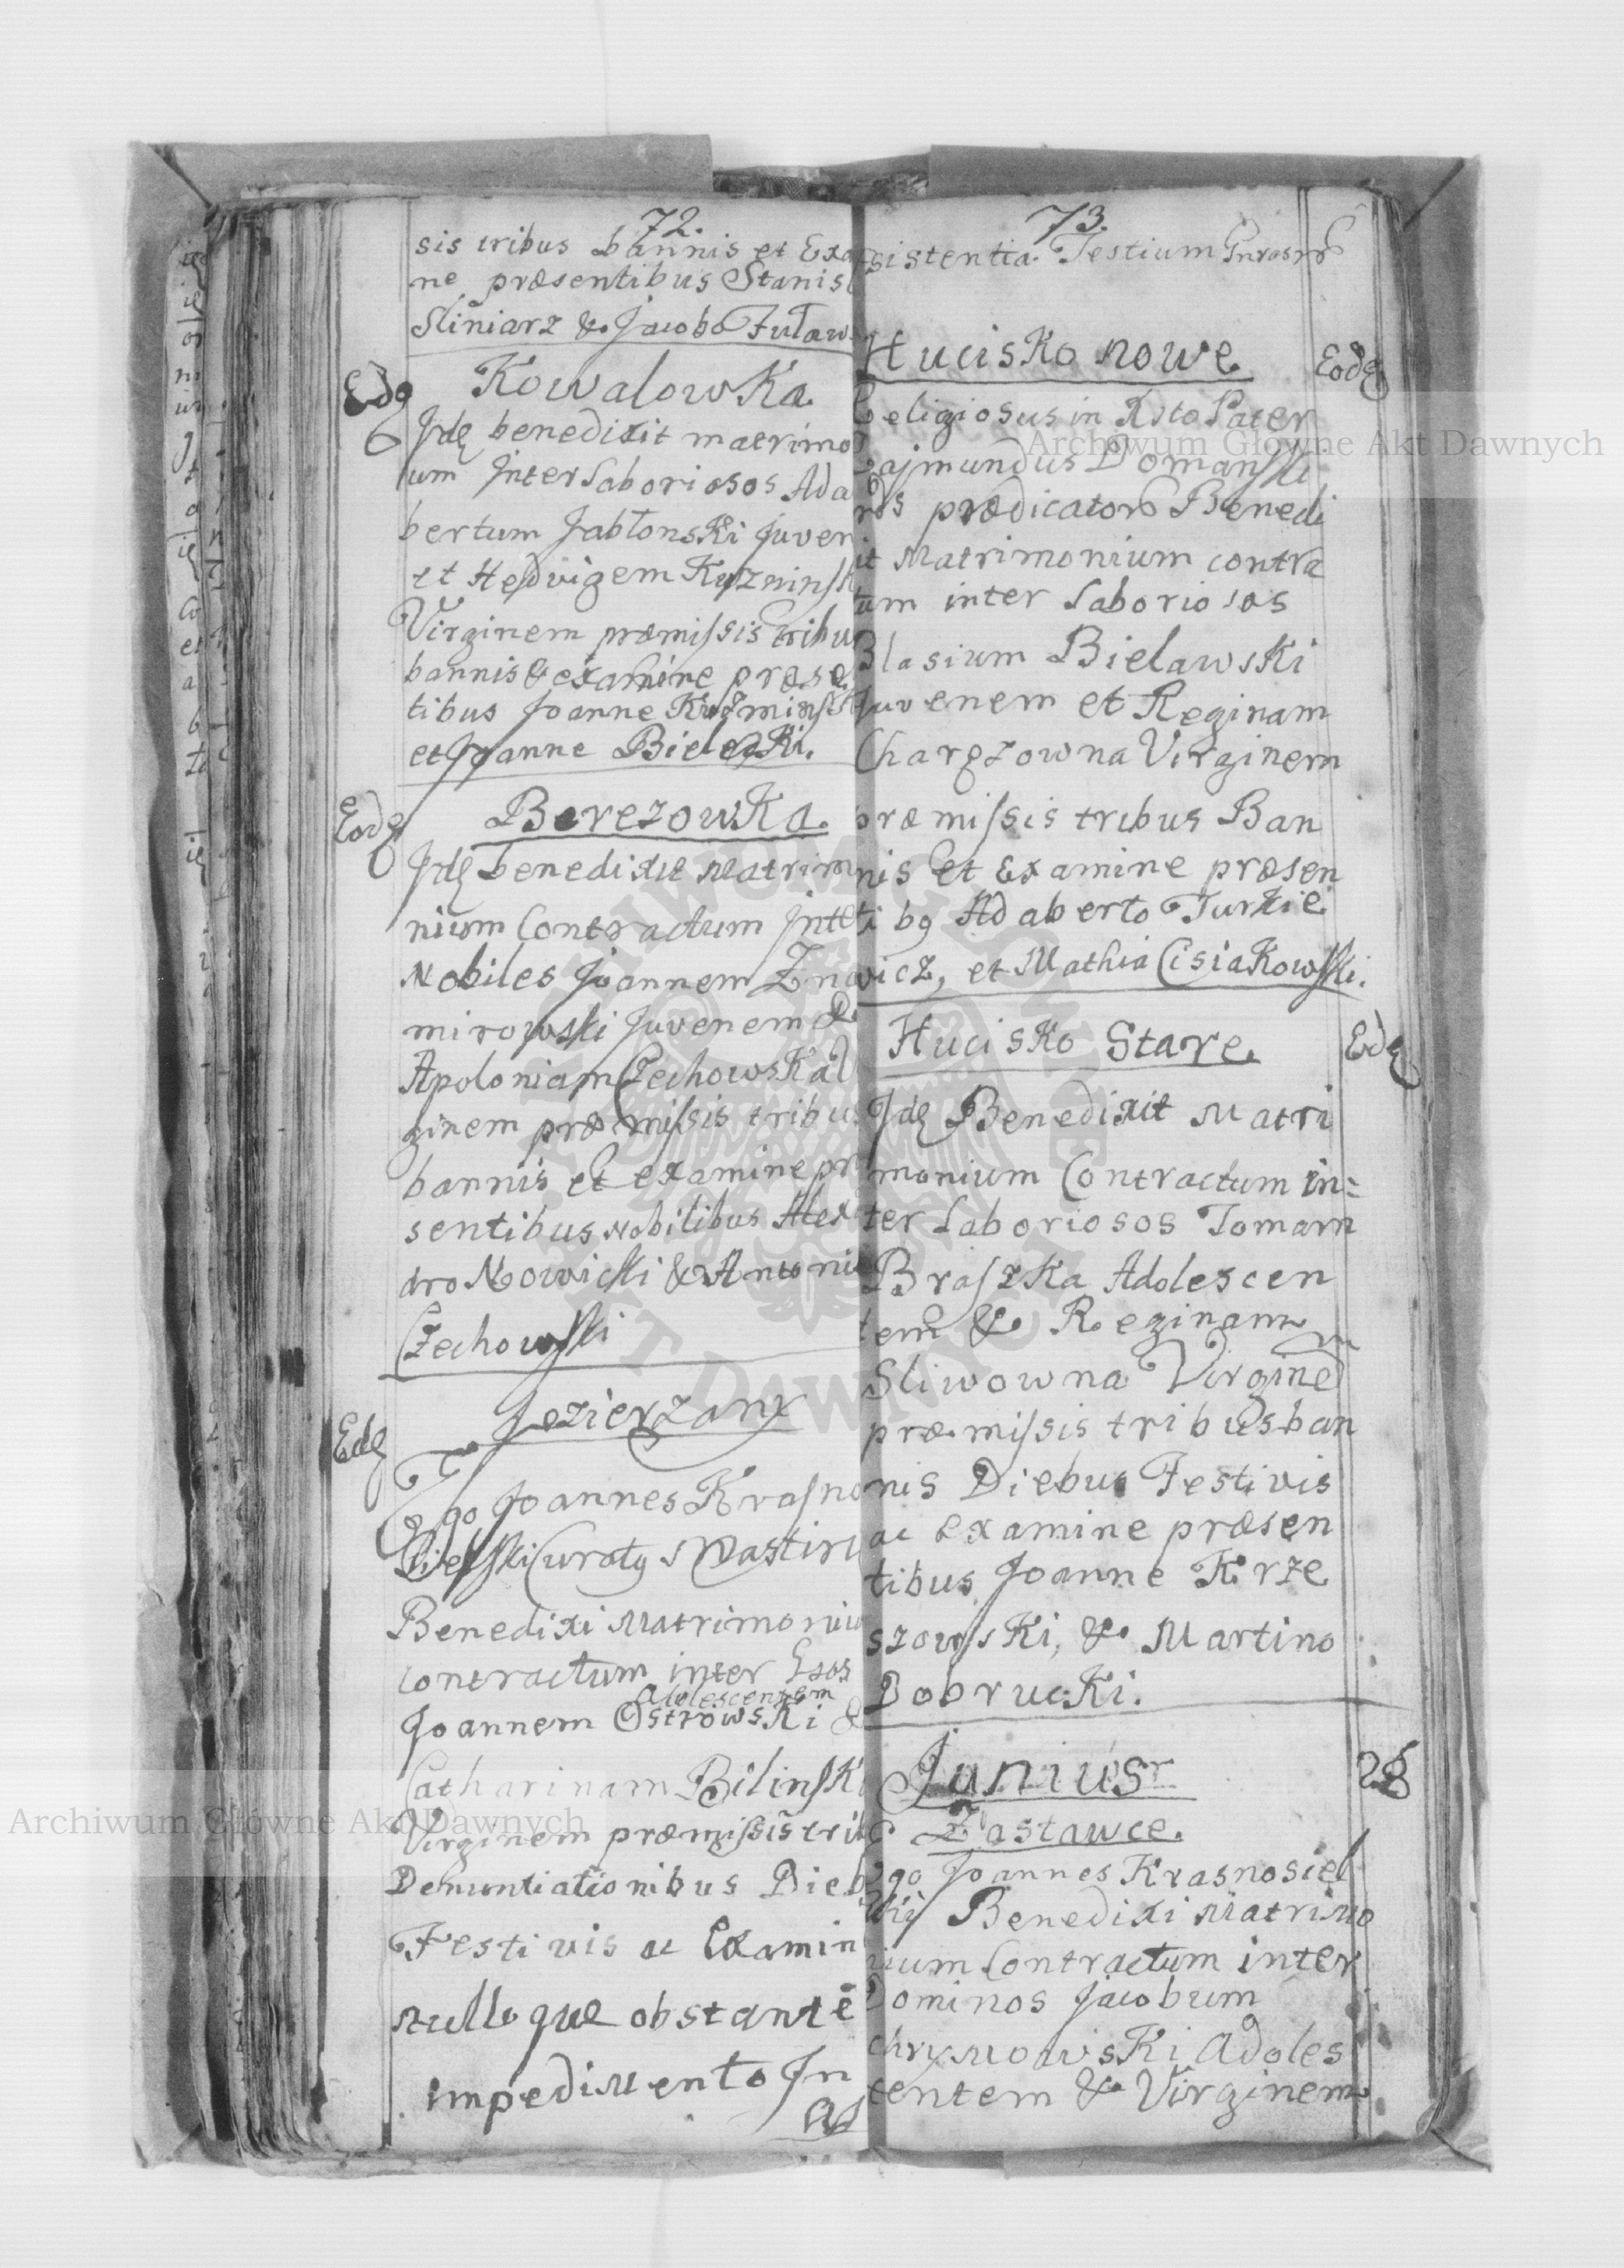 72.
sis tribus bannis et Exa
ne præsentibus Stanis
Sliniarz & Jacobo Żuław
Kowalowka
Edq
Jdę benedixit matrimo
um Jnter Laboriosos Ada
bertum Jabłonski Juven
et Hedvigem Kuzninsk
Virginem præmissis tribus
bannis & examine præse
tibus Joanne Kuzminski
et Joanne Bielecki.
Berezowka.
Eodę
Jdę benedixit Matrim
nium Contractum Jnte
Nobiles Joannem
mirowski Juvenem &
Apoloniam Czechowska
ginem præmissis tribus
bannis et examine præ
sentibus Nobilibus Alex
dro Nowicki & Antonio
Czechowski
Jezierzany
Edę
Ego Joannes Krasno
sielski Curatq
Benedixi Matrimoniu
contractum inter
Adolescentem
Joannem Ostrowski &
Catharinam Bilinski
Virginem præmissis trib
Denuntiationibus Dieb
Festivis ac Examin
nulloque obstante
impedimento Jn
as
73.
sistentia Testium
Hucisko nowe
Eodę
Religiosus in Xsto Pater
Rajmundus Domanski
prædicator Benedi
it Matrimonium contra
tum inter Laboriosos
Blasium Bielawski
Juvenem et Reginam
Charęzowna Virginem
præmissis tribus Ban
nis et Examine præsen
ti bq Adaberto Turkie
wicz, et Mathia Cisiakowski.
Hucisko Stare
Edę
Jdę Benedixit Matri
monium Contractum in=
ter Laboriosos Tomam
Braszka Adolescen
tem & Reginam
Sliwowna Virginem
præmissis tribus ban
nis Diebus Festivis
ac examine præsen
tibus Joanne Krze
szowski, & Martino
Dobrucki.
Junius
28
Zastawce.
Ego Joannes Krasnosiel
ski Benedixi Matrimo
nium Contractum inter
Dominos Jacobum
chrymowski Adoles
centem & Virginem
Archiwum Główne Akt Dawnych
Archiwum Główne Akt Dawnych
ARCHIWUM GŁÓWNE AKT DAWNYCH